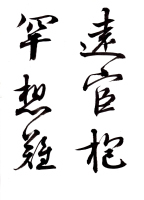 遠宦枹
罕想難